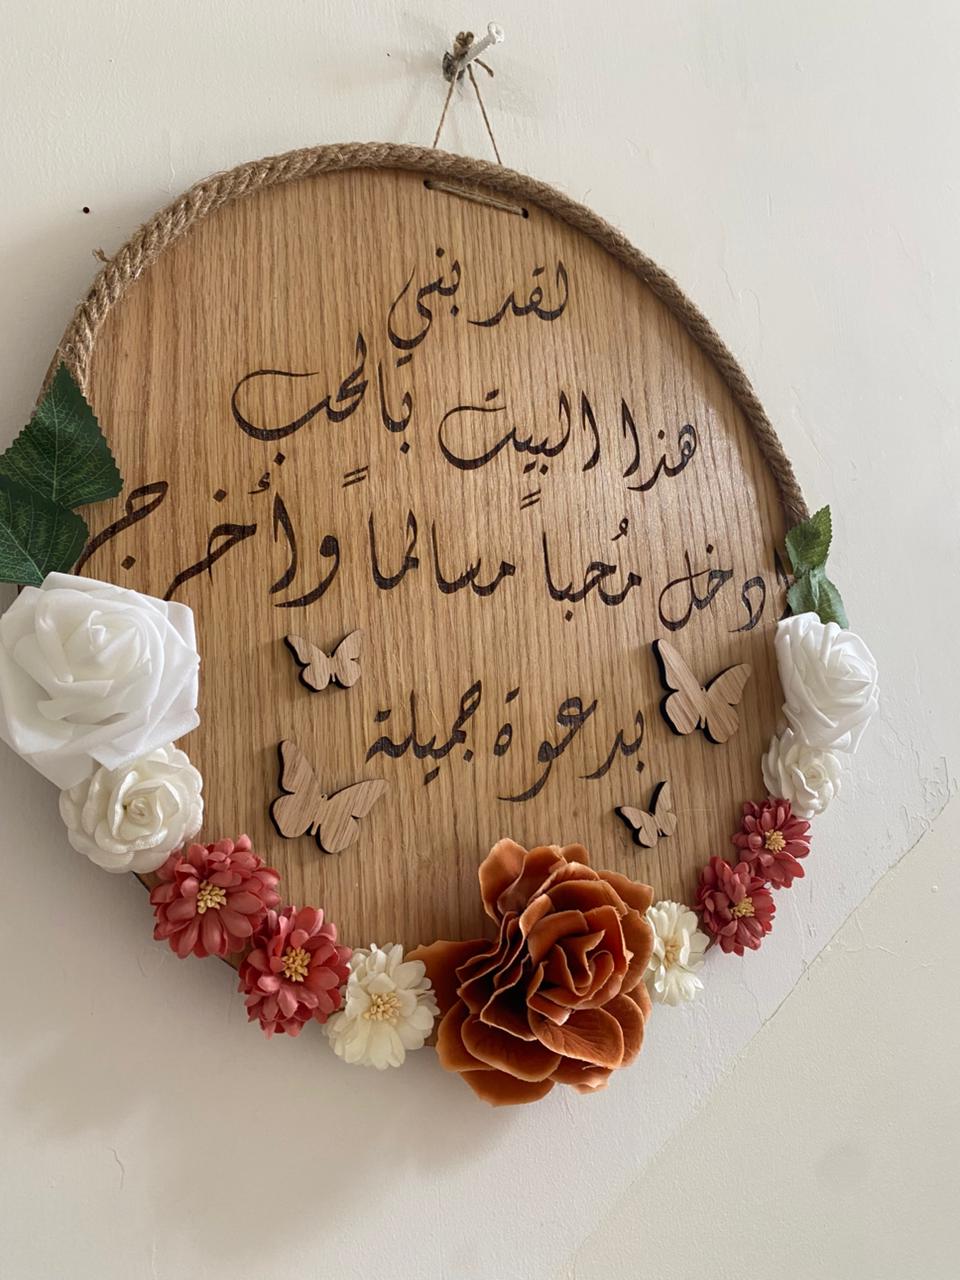 لقد بني
هذا البيت بالحب
دخل مُحباً مسالماً وأخرج
بدعوة جميلة